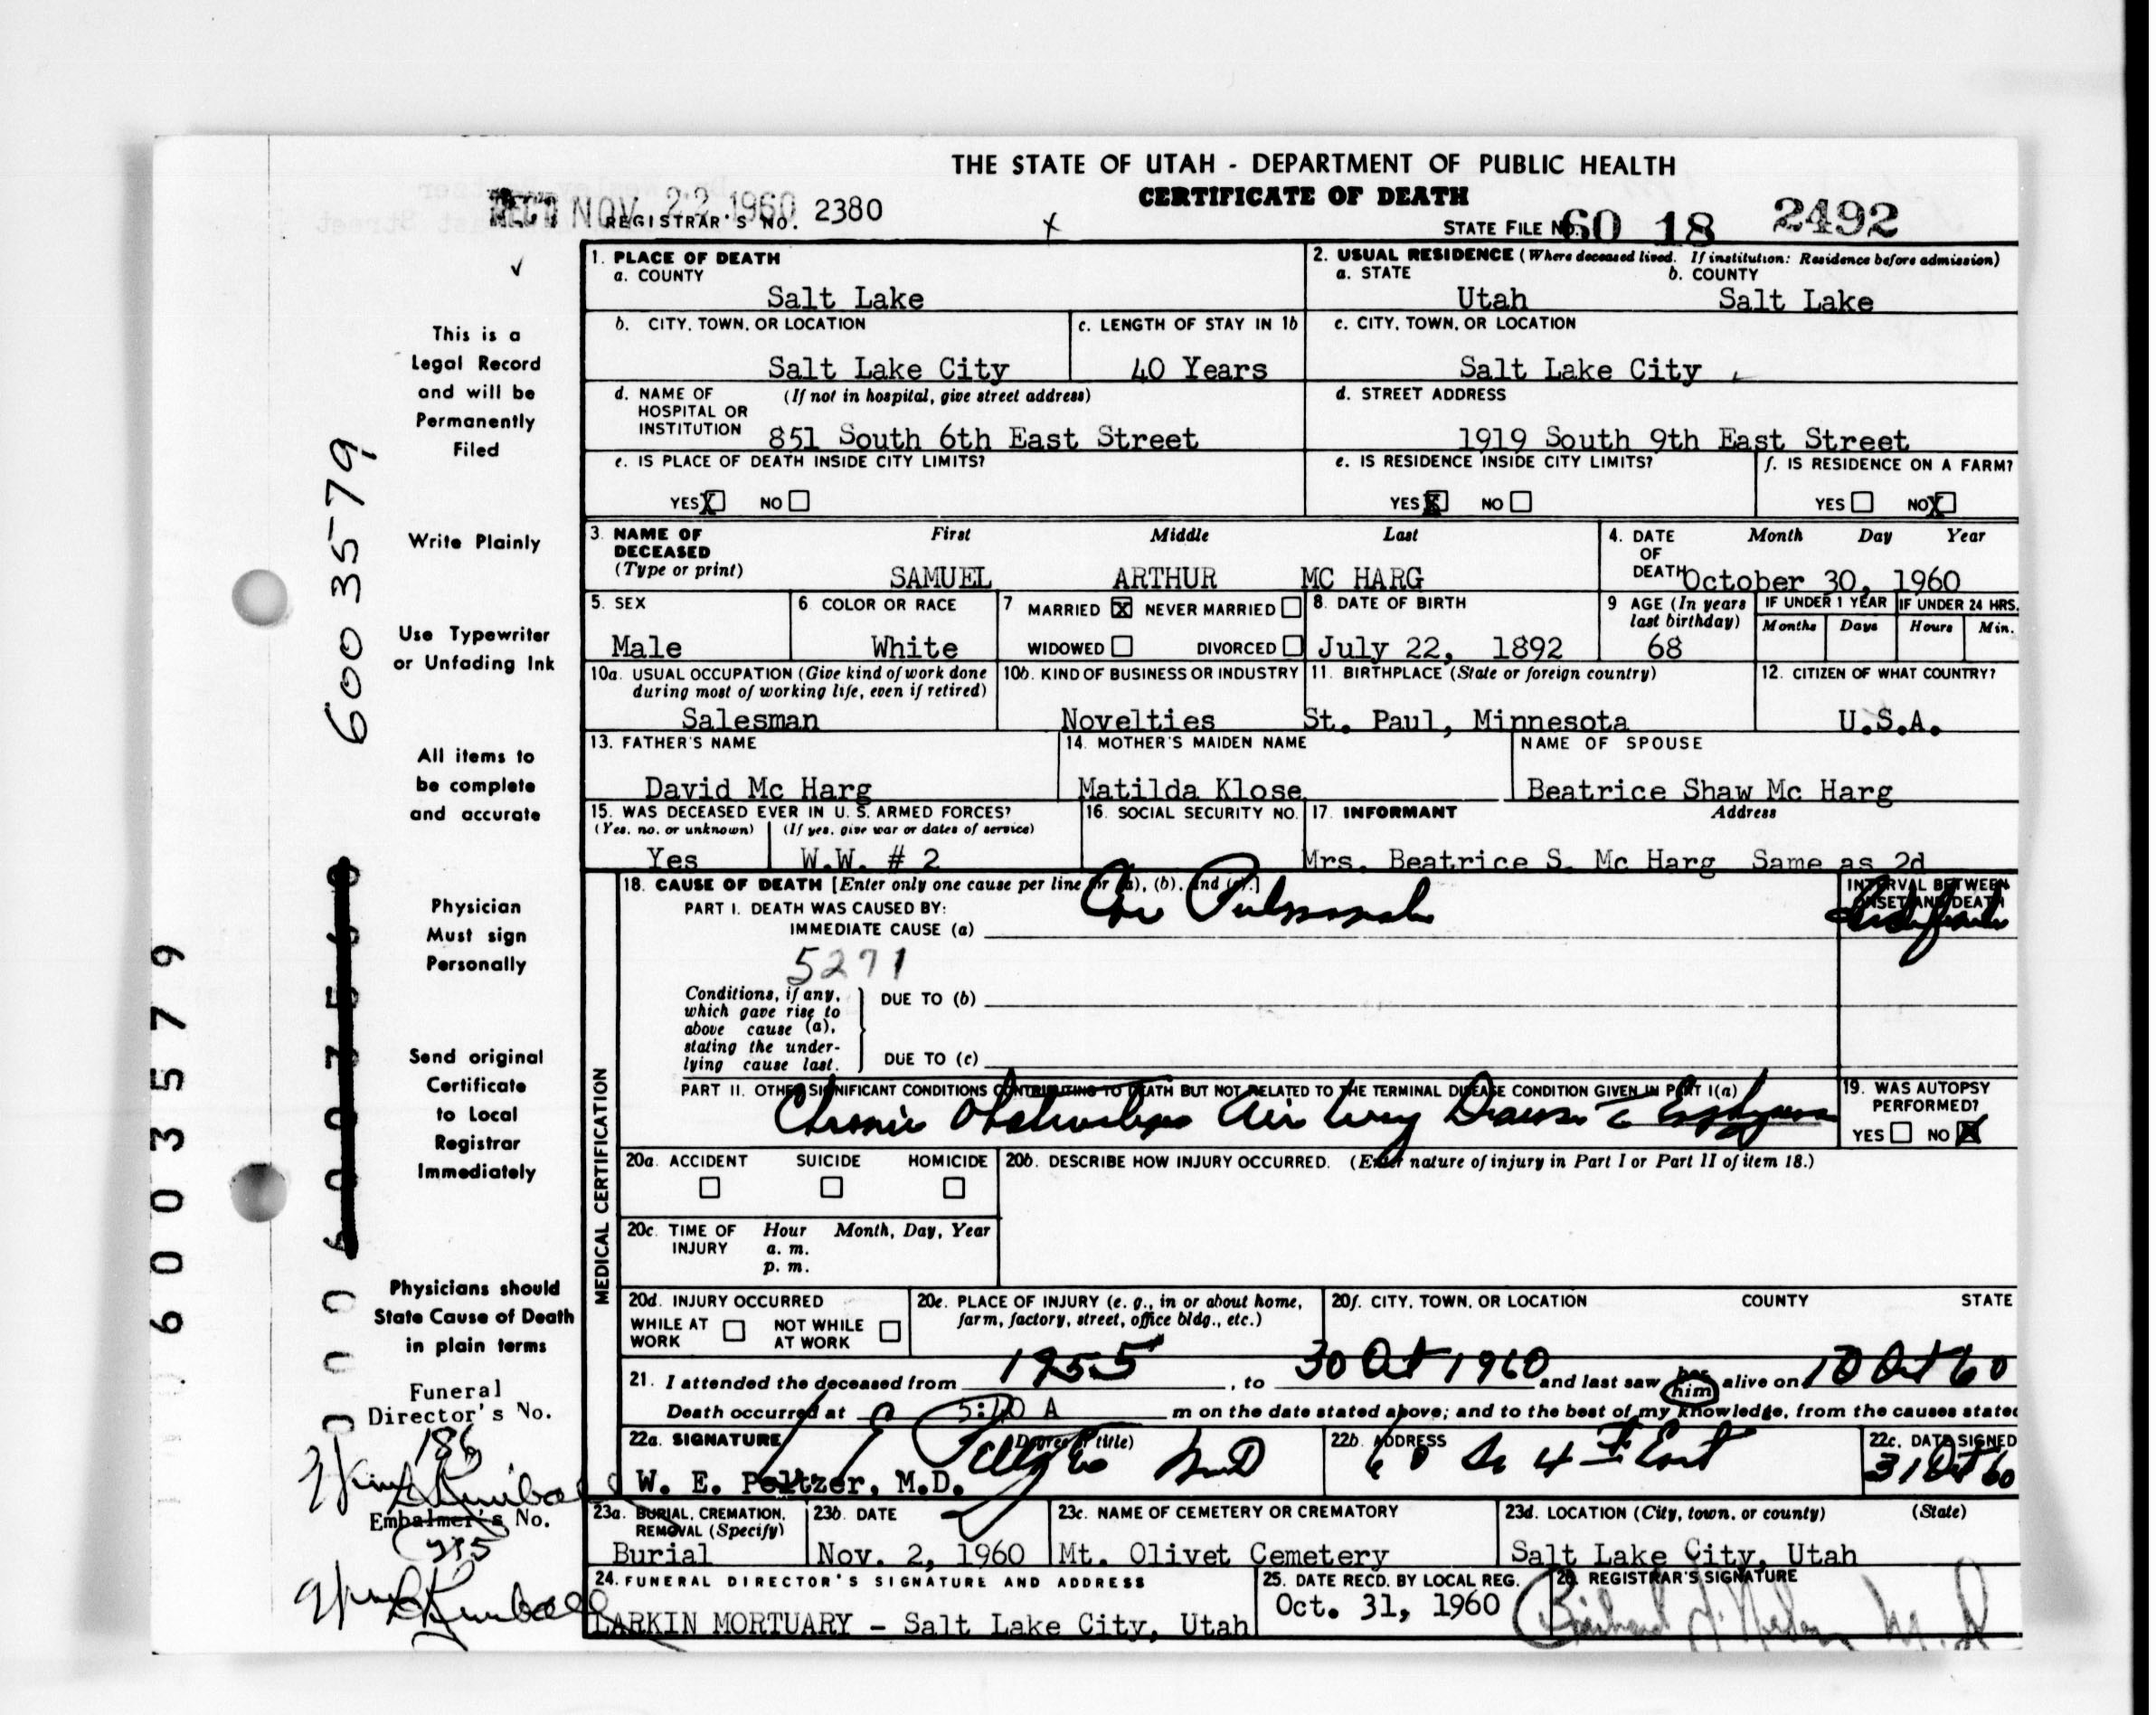 THE STATE OF UTAH - DEPARTMENT OF PUBLIC HEALTH
CERTIFICATE OF DEATH
REC'D NOV 22 1960
REGISTRAR'S NO. 2380
STATE FILE NO. 60 18 2492
1. PLACE OF DEATH
a. COUNTY
Salt Lake
2. USUAL RESIDENCE (Where deceased lived. If institution: Residence before admission)
a. STATE b. COUNTY
Utah Salt Lake
b. CITY, TOWN, OR LOCATION
Salt Lake City
c. LENGTH OF STAY IN 1b
40 Years
c. CITY, TOWN, OR LOCATION
Salt Lake City
d. NAME OF HOSPITAL OR INSTITUTION (If not in hospital, give street address)
851 South 6th East Street
d. STREET ADDRESS
1919 South 9th East Street
e. IS PLACE OF DEATH INSIDE CITY LIMITS?
YES X NO
e. IS RESIDENCE INSIDE CITY LIMITS?
YES X NO
f. IS RESIDENCE ON A FARM?
YES NO X
3. NAME OF DECEASED (Type or print)
First Middle Last
SAMUEL ARTHUR MC HARG
4. DATE OF DEATH Month Day Year
October 30, 1960
5. SEX
Male
6. COLOR OR RACE
White
7 MARRIED X NEVER MARRIED
WIDOWED DIVORCED
8. DATE OF BIRTH
July 22, 1892
9 AGE (In years last birthday)
68
IF UNDER 1 YEAR IF UNDER 24 HRS.
Months Days Hours Min.
10a. USUAL OCCUPATION (Give kind of work done during most of working life, even if retired)
Salesman
10b. KIND OF BUSINESS OR INDUSTRY
Novelties
11. BIRTHPLACE (State or foreign country)
St. Paul, Minnesota
12. CITIZEN OF WHAT COUNTRY?
U.S.A.
13. FATHER'S NAME
David Mc Harg
14. MOTHER'S MAIDEN NAME
Matilda Klose
NAME OF SPOUSE
Beatrice Shaw Mc Harg
15. WAS DECEASED EVER IN U. S. ARMED FORCES?
(Yes, no, or unknown) (If yes, give war or dates of service)
Yes W.W. # 2
16. SOCIAL SECURITY NO.
17. INFORMANT Address
Mrs. Beatrice S. Mc Harg Same as 2d
MEDICAL CERTIFICATION
18. CAUSE OF DEATH [Enter only one cause per line for (a), (b), and (c).]
PART I. DEATH WAS CAUSED BY:
IMMEDIATE CAUSE (a) Cor Pulmonale
INTERVAL BETWEEN ONSET AND DEATH
5271
Conditions, if any, which gave rise to above cause (a), stating the underlying cause last.
DUE TO (b)
DUE TO (c)
PART II. OTHER SIGNIFICANT CONDITIONS CONTRIBUTING TO DEATH BUT NOT RELATED TO THE TERMINAL DISEASE CONDITION GIVEN IN PART I(a)
Chronic Obstructive Air Way Disease
19. WAS AUTOPSY PERFORMED?
YES NO X
20a. ACCIDENT SUICIDE HOMICIDE
20b. DESCRIBE HOW INJURY OCCURRED. (Enter nature of injury in Part I or Part II of item 18.)
20c. TIME OF INJURY Hour Month, Day, Year
a. m.
p. m.
20d. INJURY OCCURRED
WHILE AT WORK NOT WHILE AT WORK
20e. PLACE OF INJURY (e. g., in or about home, farm, factory, street, office bldg., etc.)
20f. CITY, TOWN, OR LOCATION COUNTY STATE
21. I attended the deceased from 1955, to 30 Oct 1960 and last saw her him alive on 10 Oct 60
Death occurred at A m on the date stated above; and to the best of my knowledge, from the causes stated
22a. SIGNATURE (Degree or title)
W. E. Peltzer, M.D.
22b. ADDRESS
22c. DATE SIGNED
31 Oct 60
23a. BURIAL, CREMATION, REMOVAL (Specify)
Burial
23b. DATE
Nov. 2, 1960
23c. NAME OF CEMETERY OR CREMATORY
Mt. Olivet Cemetery
23d. LOCATION (City, town, or county) (State)
Salt Lake City, Utah
24. FUNERAL DIRECTOR'S SIGNATURE AND ADDRESS
LARKIN MORTUARY - Salt Lake City, Utah
25. DATE RECD. BY LOCAL REG.
Oct. 31, 1960
26. REGISTRAR'S SIGNATURE
This is a
Legal Record
and will be
Permanently
Filed
Write Plainly
Use Typewriter
or Unfading Ink
All items to
be complete
and accurate
Physician
Must sign
Personally
Send original
Certificate
to Local
Registrar
Immediately
Physicians should
State Cause of Death
in plain terms
Funeral
Director's No.
186
Embalmer's No.
6003579
6003579